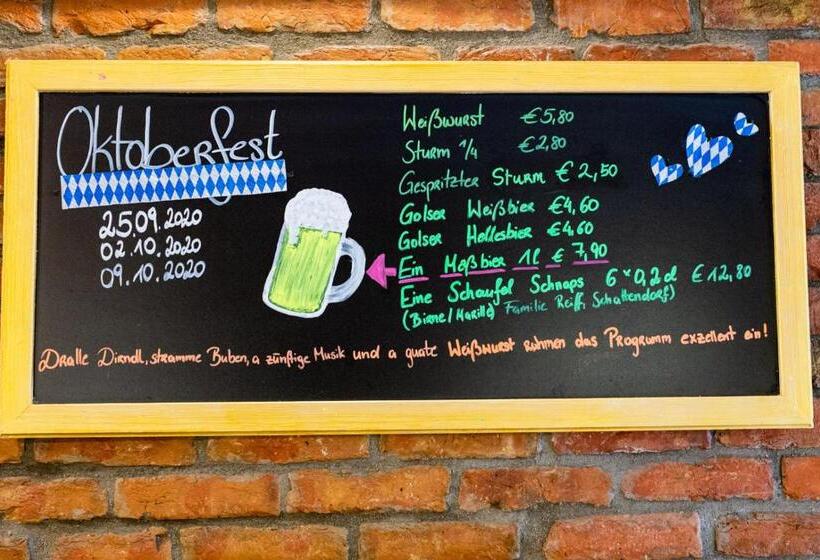 Oktoberfest
25.09.2020
02.10.2020
09.10.2020
Weißwurst €5,80
Sturm 1/4 €2,80
Gespritzter Sturm € 2,50
Golser Weißbier €4,60
Golser Hellesbier €4,60
Ein Maßbier 1l € 7,90
Eine Schaufel Schnaps 6*0,2cl €12,80
(Birne/Marille) Familie Reiff, Schattendorf)
Dralle Dirndl, stramme Buben, a zünftige Musik und a guate Weißwurst rahmen das Programm exzellent ein!